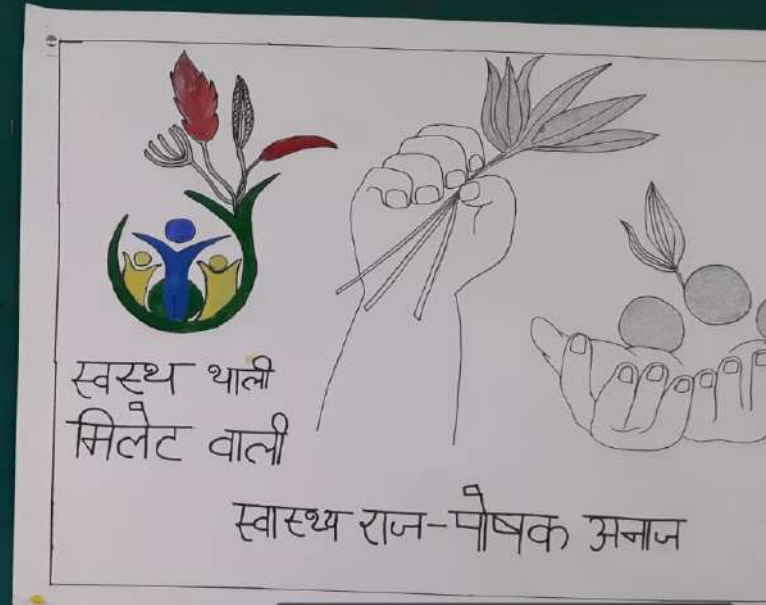 स्वस्थ थाली
मिलेट वाली
स्वास्थ्य राज-पोषक अनाज